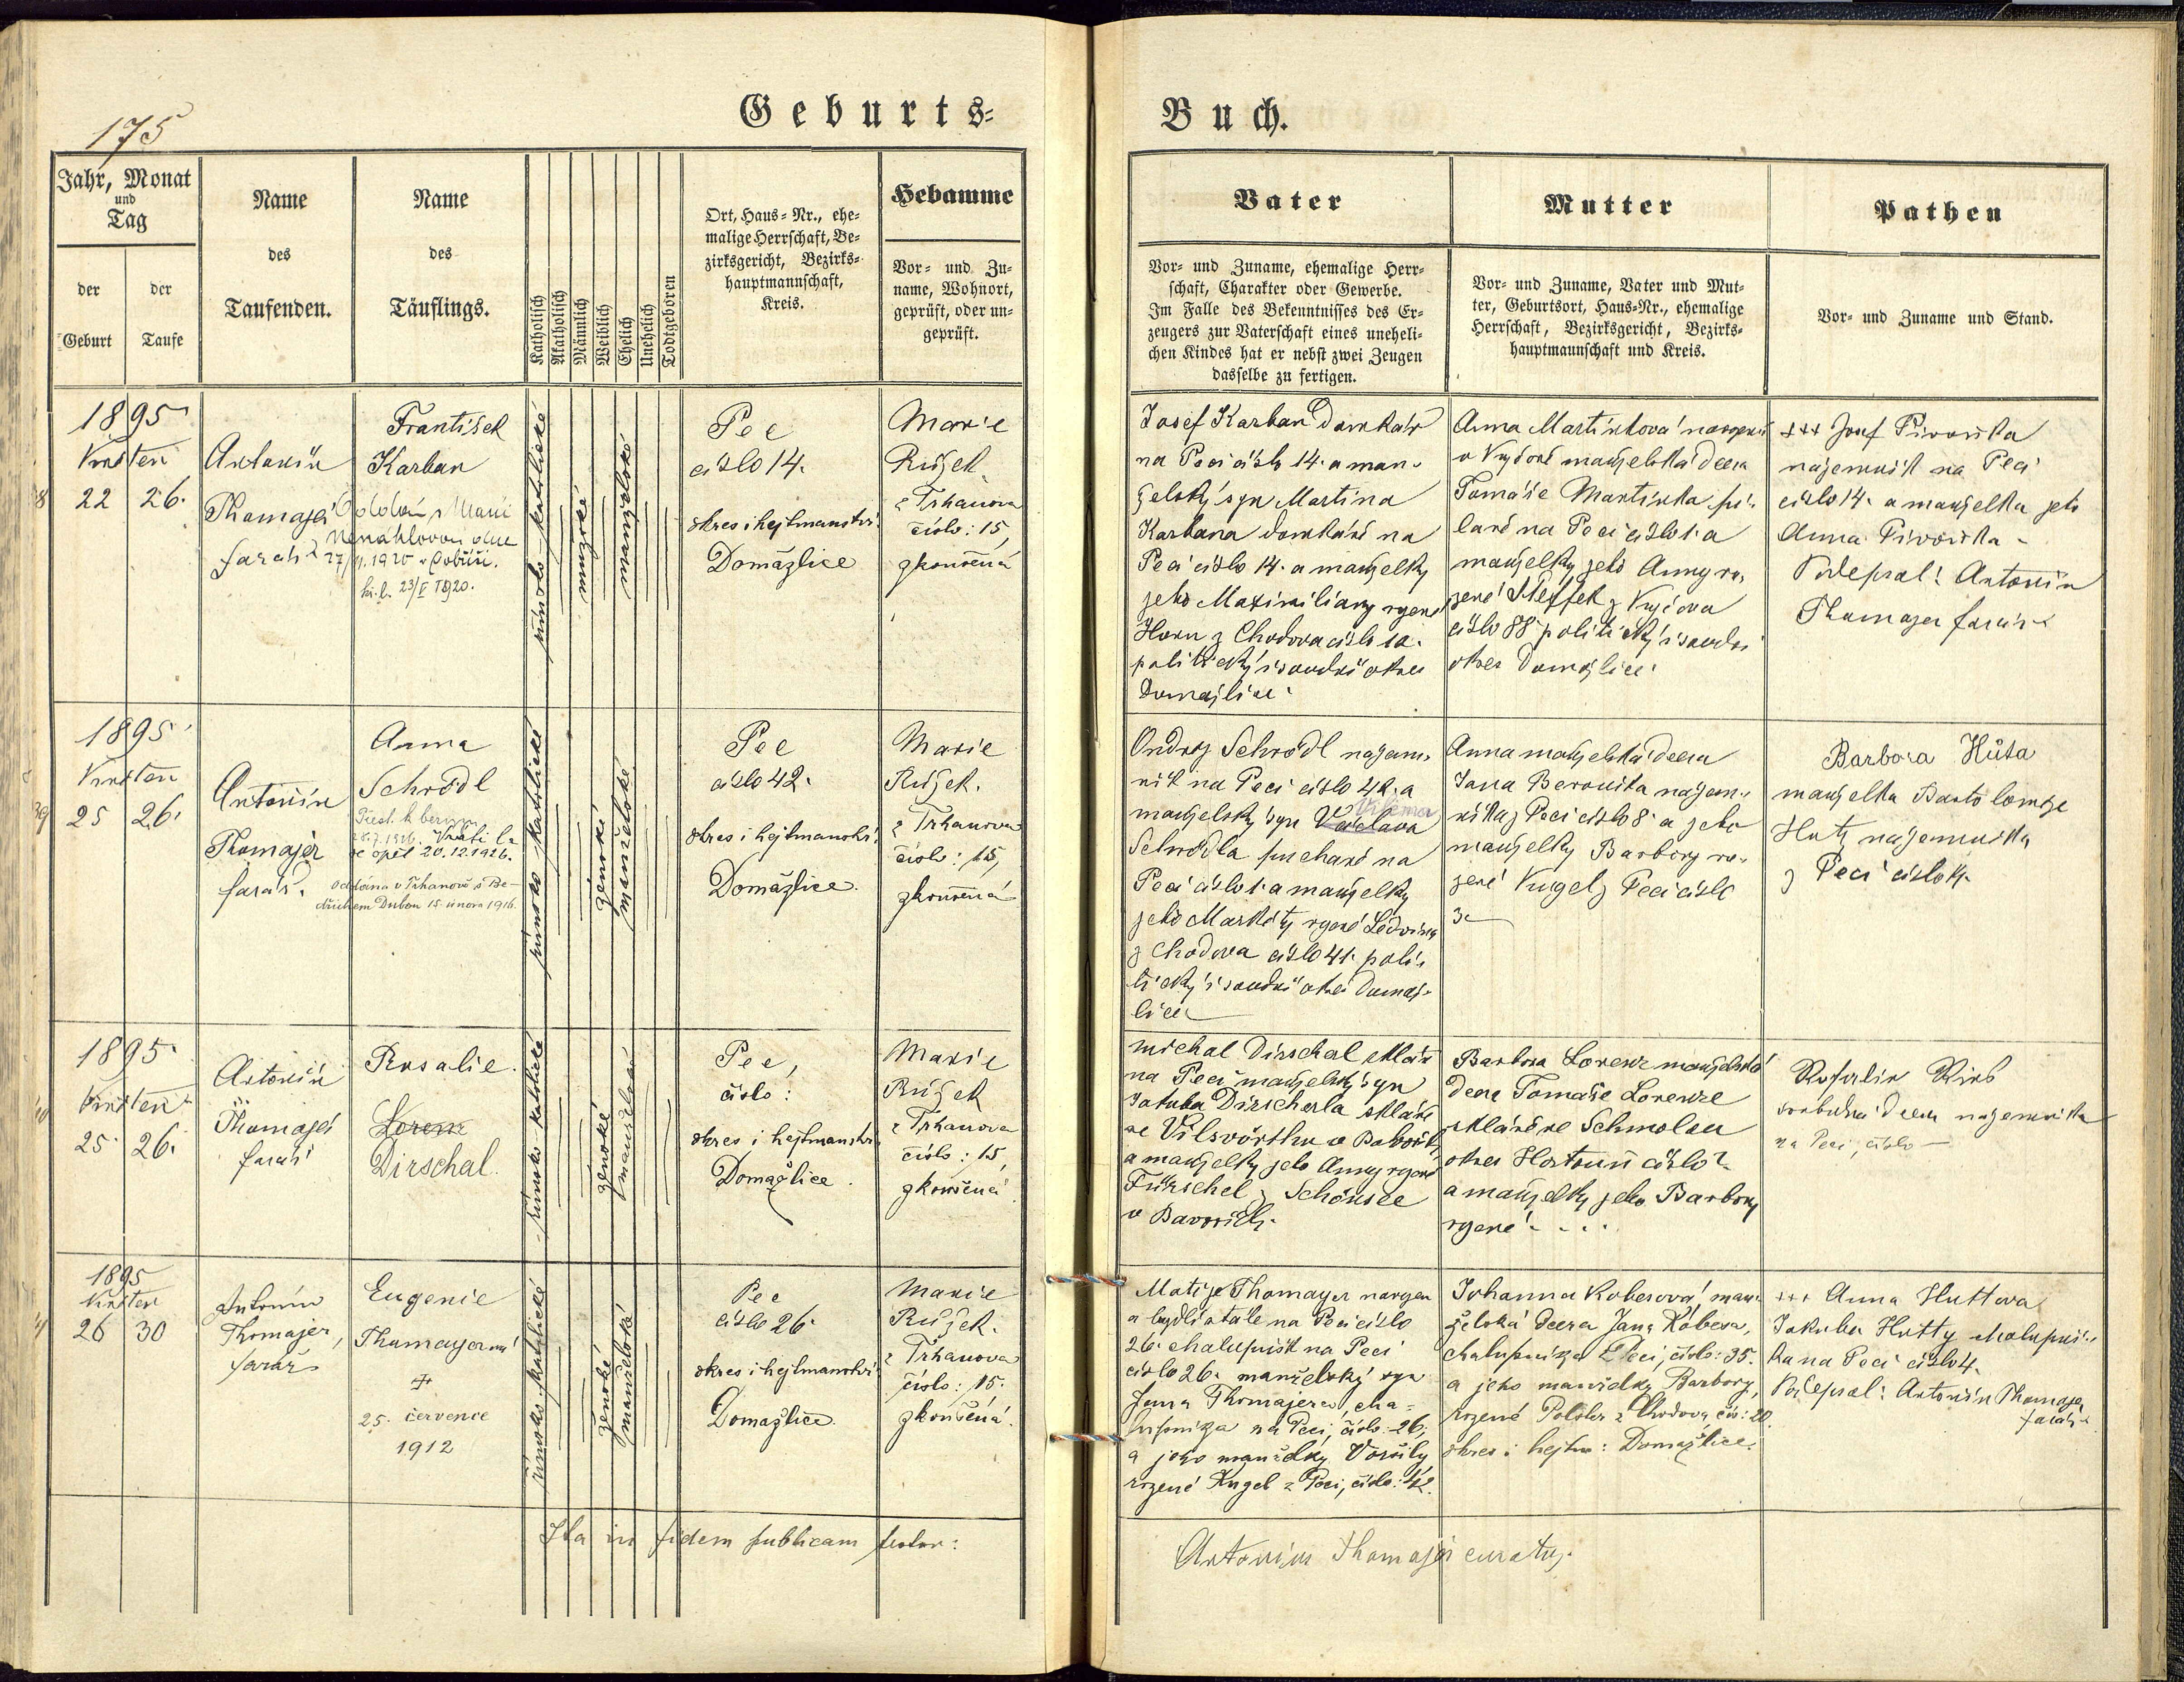 175
Geburts=
Buch.
Jahr, Monat
und
Tag
der
Geburt
der
Taufe
Name
des
Taufenden.
Name
des
Täuflings.
Katholisch
Akatholisch
Männlich
Weiblich
Ehelich
Unehelich
Todtgeboren
Ort, Haus=Nr., ehe=
malige Herrschaft, Be=
zirksgericht, Bezirks=
hauptmannschaft,
Kreis.
Hebamme
Vor= und Zu=
name, Wohnort,
geprüft, oder un=
geprüft.
Vater
Vor= und Zuname, ehemalige Herr=
schaft, Charakter oder Gewerbe.
Im Falle des Bekenntnisses des Er=
zeugers zur Vaterschaft eines uneheli=
chen Kindes hat er nebst zwei Zeugen
dasselbe zu fertigen.
Mutter
Vor= und Zuname, Vater und Mut=
ter, Geburtsort, Haus=Nr., ehemalige
Herrschaft, Bezirksgericht, Bezirks=
hauptmannschaft und Kreis.
Pathen
Vor= und Zuname und Stand.
1895
Květen
22 26.
Antonín
Thomajer
farář
František
Karban
27/4. 1920 v Dobříši.
23/V 1920.
římsko-katolické
mužské
manželské
Pec
číslo 14.
okres i hejtmanství
Domažlice
Marie
Růžek
z Trhanova
číslo: 15,
zkoušená
Josef Karban domkář
na Peci číslo 14. a man-
želský syn Martina
Karbana domkáře na
Peci číslo 14. a manželky
jeho Maximiliany rozené
Horn z Chodova číslo 12.
politický i soudní okres
Domažlice.
Anna Martínková narozená
v Kyčově manželská dcera
Tomáše Martínka pi-
laře na Peci číslo 1. a
manželky jeho Anny ro-
zené Steffek z Kyčova
číslo 88 politický i soudní
okres Domažlice.
+++ Josef Pivoňka
nájemník na Peci
číslo 14. a manželka jeho
Anna Pivoňka -
Podepsal: Antonín
Thomayer farář
1895
Květen
25 26.
Antonín
Thomajer
farář.
Anna
Schrödl
Přest. k
Vrátila
se opět 20.12.1926.
oddána v Trhanově s Be-
dřichem Dubou 15. února 1916.
římsko-katolické
ženské
manželské
Pec
číslo 42.
okres i hejtmanství
Domažlice.
Marie
Růžek.
z Trhanova
číslo: 15,
zkoušená
Ondřej Schrödl nájem-
ník na Peci číslo 42. a
manželský syn Václava
Vilema
Schrödla puchaře na
Peci číslo 1. a manželky
jeho Markéty rozené Ledvina
z Chodova číslo 41. poli-
tický i soudní okres Domaž-
lice
Anna manželská dcera
Jana Berouška nájem-
níka z Peci číslo 8. a jeho
manželky Barbory ro-
zené Kugel z Peci číslo
3.
Barbora Hůta
manželka Bartoloměje
Huty nájemníka
z Peci číslo 4.
1895
Květen
25 26.
Antonín
Thomajer
farář
Rosalie.
Lorenz
Dirschal.
římsko-katolické
ženské
manželské
Pec,
číslo:
okres i hejtmanství
Domažlice.
Marie
Růžek
z Trhanova
číslo: 15,
zkoušená.
Michal Dirschal sklář
na Peci manželský syn
Jakuba Dirscherla skláře
ve Vilsvörthu v Bavořích
a manželky jeho Anny rozené
z Schönsee
v Bavořích.
Barbora Lorenz manželská
dcera Tomáše Lorenze
skláře ve Schmolau
okres Hostouň číslo?
a manželky jeho Barbory
rozené - . . .
dcera nájemníka
na Peci, číslo -
1895
Květen
26 30
Antonín
Thomajer,
farář
Eugenie
Thomayerová
+
25. července
1912
římsko-katolické
ženské
manželské
Pec
číslo 26.
okres i hejtmanství
Domažlice.
Marie
Růžek.
z Trhanova
číslo: 15.
zkoušená.
Matěj Thomayer narozen
a bydlí stále na Peci číslo
26. chalupník na Peci
číslo 26. manželský syn
Jana Thomajera, cha=
lupníka na Peci, číslo: 26,
a jeho manželky Voršily,
rozené Kugel z Peci, číslo: 42.
Johanna Kobesová, man-
želská dcera Jana Kobesa,
chalupníka z Peci, číslo: 35.
a jeho manželky Barbory,
rozené Polster z Chodova, čís: 20.
okres i hejtm: Domažlice.
+++ Anna Huttova
Jakuba Hutty chalupní-
ka na Peci číslo 4.
Podepsal: Antonín Thomajer
farář
Ita in fidem publicam testor:
Antonius Thomajer curatus.